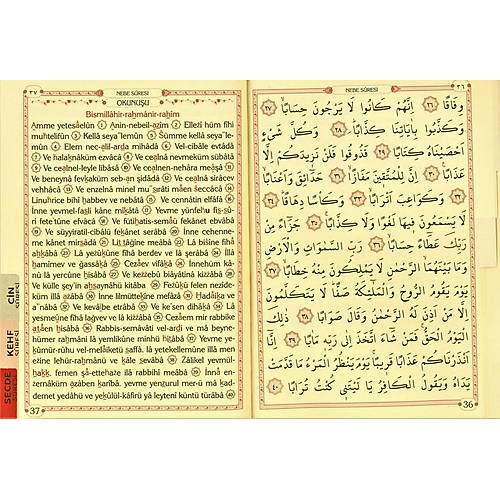 ٣٦
NEBE SÛRESİ
وِفَاقًا ﴿٢٦﴾ اِنَّهُمْ كَانُوا لَا يَرْجُونَ حِسَابًا ﴿٢٧﴾
وَكَذَّبُوا بِاٰيَاتِنَا كِذَّابًا ﴿٢٨﴾ وَكُلَّ شَيْءٍ
اَحْصَيْنَاهُ كِتَابًا ﴿٢٩﴾ فَذُوقُوا فَلَنْ نَزِيدَكُمْ اِلَّا
عَذَابًا ﴿٣٠﴾ اِنَّ لِلْمُتَّقِينَ مَفَازًا ﴿٣١﴾ حَدَائِقَ وَاَعْنَابًا
﴿٣٢﴾ وَكَوَاعِبَ اَتْرَابًا ﴿٣٣﴾ وَكَأْسًا دِهَاقًا ﴿٣٤﴾
لَا يَسْمَعُونَ فِيهَا لَغْوًا وَلَا كِذَّابًا ﴿٣٥﴾ جَزَاءً مِنْ
رَبِّكَ عَطَاءً حِسَابًا ﴿٣٦﴾ رَبِّ السَّمٰوَاتِ وَالْاَرْضِ
وَمَا بَيْنَهُمَا الرَّحْمٰنِ لَا يَمْلِكُونَ مِنْهُ خِطَابًا ﴿٣٧﴾
يَوْمَ يَقُومُ الرُّوحُ وَالْمَلٰئِكَةُ صَفًّا لَا يَتَكَلَّمُونَ
اِلَّا مَنْ اَذِنَ لَهُ الرَّحْمٰنُ وَقَالَ صَوَابًا ﴿٣٨﴾ ذٰلِكَ
الْيَوْمُ الْحَقُّ فَمَنْ شَاءَ اتَّخَذَ اِلٰى رَبِّهِ مَاٰبًا ﴿٣٩﴾ اِنَّا
اَنْذَرْنَاكُمْ عَذَابًا قَرِيبًا يَوْمَ يَنْظُرُ الْمَرْءُ مَا قَدَّمَتْ
يَدَاهُ وَيَقُولُ الْكَافِرُ يَا لَيْتَنِي كُنْتُ تُرَابًا ﴿٤٠﴾
36
٣٧
NEBE SÛRESİ
OKUNUŞU
Bismillâhir-raḥmânir-raḥîm
Amme yetesâelûn ① Anin-nebeil-aẓîm ② Elleẕî hüm fîhi
muḫtelifûn ③ Kellâ seya'lemûn ④ Sümme kellâ seya'le-
mûn ⑤ Elem nec-alil-arḍa mihâdâ ⑥ Vel-cibâle evtâdâ
⑦ Ve ḫalaḳnâküm ezvâcâ ⑧ Ve cealnâ nevmeküm sübâtâ
⑨ Ve cealnel-leyle libâsâ ⑩ Ve cealnen-nehâra meâşâ
⑪ Ve beneynâ fevḳaküm seb-an şidâdâ ⑫ Ve cealnâ sirâcev
vehhâcâ ⑬ Ve enzelnâ minel mu'ṣirâti mâen ŝeccâcâ ⑭
Linuḫrice bihî ḥabbev ve nebâtâ ⑮ Ve cennâtin elfâfâ ⑯
İnne yevmel-faṣli kâne mîḳâtâ ⑰ Yevme yünfeḫu fiṣ-ṣû-
ri fete'tûne efvâcâ ⑱ Ve fütiḥatis-semâü fekânet ebvâbâ
⑲ Ve süyyiratil-cibâlü fekânet serâbâ ⑳ İnne cehenne-
me kânet mirṣâdâ ㉑ Lit ṭâğîne meâbâ ㉒ Lâ biŝîne fîhâ
aḥḳâbâ ㉓ Lâ yeẕûḳûne fîhâ berdev ve lâ şerâbâ ㉔ İllâ
ḥamîmev ve ğassâḳâ ㉕ Cezâev vifâḳâ ㉖ İnnehüm kâ-
nû lâ yercûne ḥisâbâ ㉗ Ve keẕẕebû biâyâtinâ kiẕẕâbâ ㉘
Ve külle şey'in aḥṣaynâhü kitâbâ ㉙ Feẕûḳû felen nezîde-
küm illâ aẕâbâ ㉚ İnne lilmütteḳîne mefâzâ ㉛ Ḥadâiḳa ve
a'nâbâ ㉜ Ve kevâıbe etrâbâ ㉝ Ve ke'sen dihâḳâ ㉞ Lâ
yesmeûne fîhâ lağvev ve lâ kiẕẕâbâ ㉟ Cezâem mir rabbike
atâen ḥisâbâ ㊱ Rabbis-semâvâti vel-arḍi ve mâ beyne
hümer raḥmâni lâ yemlikûne minhü ḫitâbâ ㊲ Yevme ye-
ḳûmür-rûḥu vel-melâiketü ṣaffâ. lâ yetekellemûne illâ men
eẕine lehür-raḥmânü ve ḳâle ṣavâbâ ㊳ Ẕâlikel yevmül-
ḥaḳḳ. femen şâ-ettehaẕe ilâ rabbihî meâbâ ㊴ İnnâ en-
ẕernâküm aẕâben ḳarîbâ. yevme yenẓurul mer-ü mâ ḳad-
demet yedâhü ve yeḳûlül-kâfirü yâ leytenî küntü türâbâ ㊵
37
CİN
SÛRESİ
KEHF
SÛRESİ
SECDE
SÛRESİ